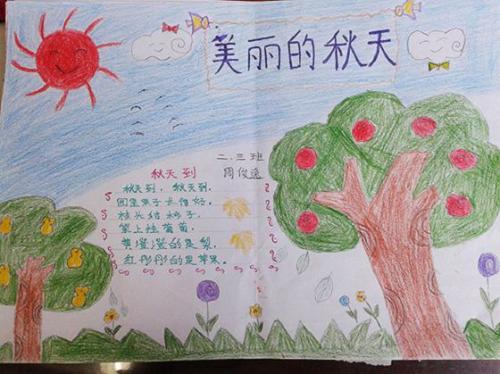 美丽的秋天
二.三班
周俊
秋天到
秋天到,秋天到,
园里果子长得好。
枝头结柿子,
架上挂葡萄。
黄澄澄的是梨,
红彤彤的是苹果。